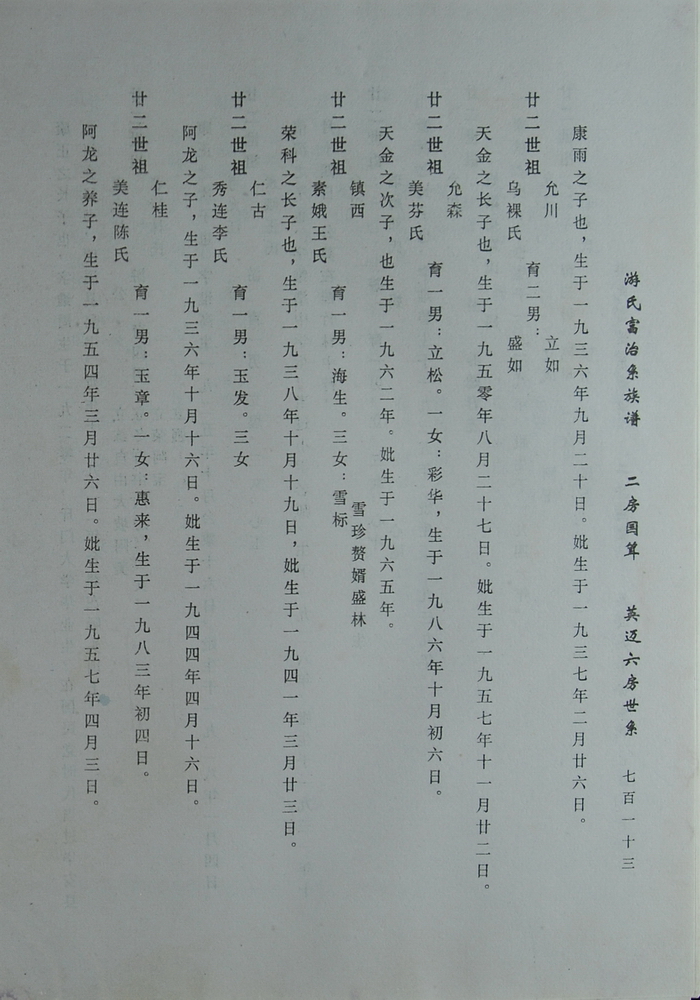 游氏富治系族谱 二房国算 英迈六房世系 七百一十三
康雨之子也，生于一九三六年九月二十日。妣生于一九三七年二月廿六日。
廿二世祖 允川 乌裸氏 育二男： 立如 盛如
天金之长子也，生于一九五零年八月二十七日。妣生于一九五七年十一月廿二日。
廿二世祖 允森 美芬氏 育一男：立松。一女：彩华，生于一九八六年十月初六日。
天金之次子，也生于一九六二年。妣生于一九六五年。
廿二世祖 镇西 素娥王氏 育一男：海生。三女：雪标 雪珍赘婿盛林
荣科之长子也，生于一九三八年十月十九日，妣生于一九四一年三月廿三日。
廿二世祖 仁古 秀连李氏 育一男：玉发。三女
阿龙之子，生于一九三六年十月十六日。妣生于一九四四年四月十六日。
廿二世祖 仁桂 美连陈氏 育一男：玉章。一女：惠来，生于一九八三年初四日。
阿龙之养子，生于一九五四年三月廿六日。妣生于一九五七年四月三日。